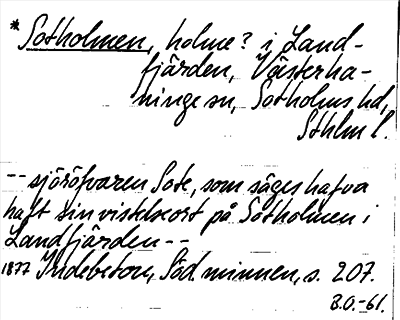 *Sotholmen, holme? i Land-
fjärden, Västerha-
ninge sn, Sotholms hd,
Sthlm l.
-- sjöröfvaren Sote, som säges hafva
haft sin vistelseort på Sotholmen i
Landfjärden --
1877 Indebetou, Söd. minnen, s. 207.
B.O.-61.